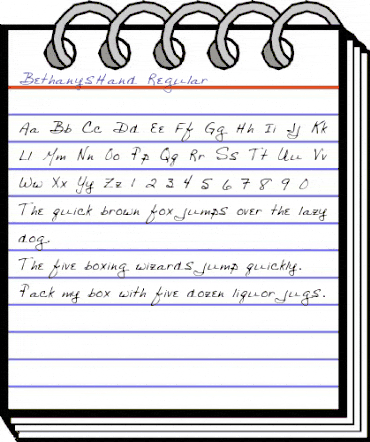 BethanysHand Regular
Aa Bb Cc Dd Ee Ff Gg Hh Ii Jj Kk
Ll Mm Nn Oo Pp Qq Rr Ss Tt Uu Vv
Ww Xx Yy Zz 1 2 3 4 5 6 7 8 9 0
The quick brown fox jumps over the lazy
dog.
The five boxing wizards jump quickly.
Pack my box with five dozen liquor jugs.